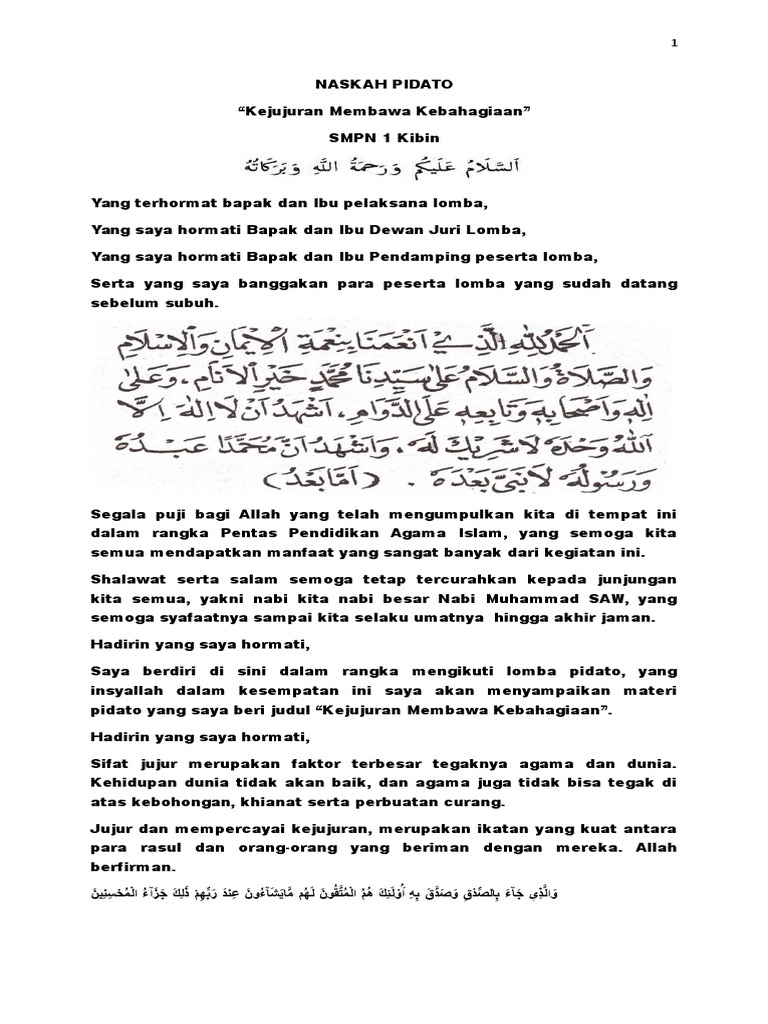 1
NASKAH PIDATO
“Kejujuran Membawa Kebahagiaan”
SMPN 1 Kibin
اَلسَّلَامُ عَلَيْكُمْ وَرَحْمَةُ اللَّهِ وَبَرَكَاتُهُ
Yang terhormat bapak dan Ibu pelaksana lomba,
Yang saya hormati Bapak dan Ibu Dewan Juri Lomba,
Yang saya hormati Bapak dan Ibu Pendamping peserta lomba,
Serta yang saya banggakan para peserta lomba yang sudah datang
sebelum subuh.
اَلْحَمْدُ لِلّٰهِ الَّذِيْ اَنْعَمَنَا بِنِعْمَةِ الْاِيْمَانِ وَالْاِسْلَامِ
وَالصَّلَاةُ وَالسَّلَامُ عَلٰى سَيِّدِنَا مُحَمَّدٍ خَيْرِ الْاَنَامِ، وَعَلٰى
اٰلِهٖ وَاَصْحَابِهٖ وَتَابِعِهٖ عَلَى الدَّوَامِ، اَشْهَدُ اَنْ لَا اِلٰهَ اِلَّا
اللهُ وَحْدَهُ لَا شَرِيْكَ لَهُ، وَاَشْهَدُ اَنَّ مُحَمَّدًا عَبْدُهُ
وَرَسُوْلُهُ لَا نَبِيَّ بَعْدَهُ . (اَمَّا بَعْدُ)
Segala puji bagi Allah yang telah mengumpulkan kita di tempat ini
dalam rangka Pentas Pendidikan Agama Islam, yang semoga kita
semua mendapatkan manfaat yang sangat banyak dari kegiatan ini.
Shalawat serta salam semoga tetap tercurahkan kepada junjungan
kita semua, yakni nabi kita nabi besar Nabi Muhammad SAW, yang
semoga syafaatnya sampai kita selaku umatnya hingga akhir jaman.
Hadirin yang saya hormati,
Saya berdiri di sini dalam rangka mengikuti lomba pidato, yang
insyallah dalam kesempatan ini saya akan menyampaikan materi
pidato yang saya beri judul “Kejujuran Membawa Kebahagiaan”.
Hadirin yang saya hormati,
Sifat jujur merupakan faktor terbesar tegaknya agama dan dunia.
Kehidupan dunia tidak akan baik, dan agama juga tidak bisa tegak di
atas kebohongan, khianat serta perbuatan curang.
Jujur dan mempercayai kejujuran, merupakan ikatan yang kuat antara
para rasul dan orang-orang yang beriman dengan mereka. Allah
berfirman.
وَالَّذِي جَآءَ بِالصِّدْقِ وَصَدَّقَ بِهِ أُوْلَئِكَ هُمُ الْمُتَّقُونَ لَهُم مَّايَشَآءُونَ عِندَ رَبِّهِمْ ذَلِكَ جَزَآءُ الْمُحْسِنِينَ